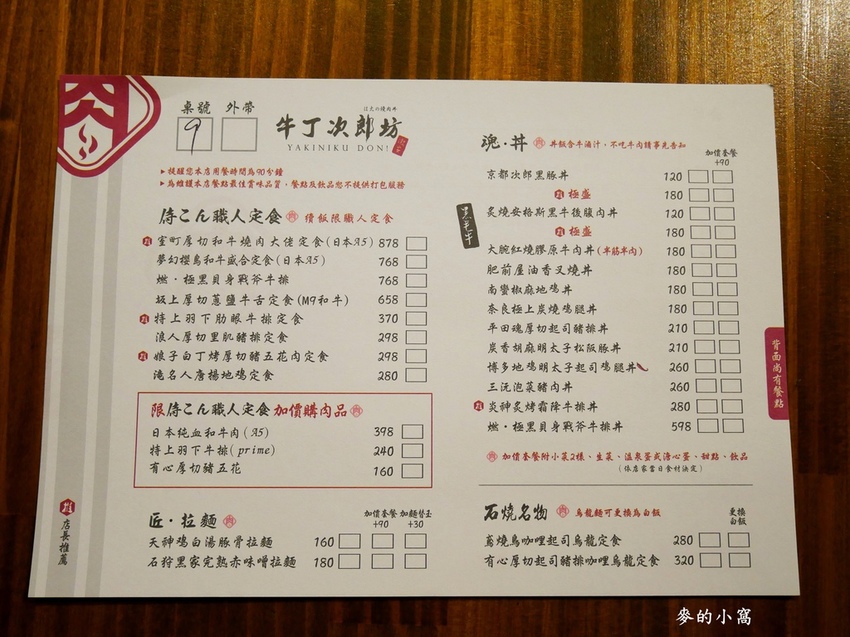 桌號 外帶
9
日式の燒肉丼
牛丁次郎坊
YAKINIKU DON!
▸提醒您本店用餐時間為90分鐘
▸為維護本店餐點最佳賞味品質、餐點及飲品恕不提供打包服務
侍こん職人定食 續飯限職人定食
室町厚切和牛燒肉大佬定食(日本A5) 878
夢幻櫻島和牛盛合定食(日本A5) 768
燃・極黑貝身戰斧牛排 768
坂上厚切蔥鹽牛舌定食(M9和牛) 658
特上羽下肋眼牛排定食 370
浪人厚切里肌豬排定食 298
娘子白丁烤厚切豬五花肉定食 298
滝名人唐揚地鶏定食 280
限侍こん職人定食加價購肉品
日本純血和牛肉(A5) 398
特上羽下牛排(prime) 240
有心厚切豬五花 160
匠・拉麵
加價套餐 +90
加麵替玉 +30
天神鶏白湯豚骨拉麵 160
石狩黑家完熟赤味噌拉麵 180
推 店長推薦
魂・丼 丼飯含牛滷汁，不吃牛肉請事先告知
加價套餐 +90
京都次郎黑豚丼 120
極盛 180
黑毛牛
炙燒安格斯黑牛後腹肉丼 120
極盛 180
大腕紅燒膠原牛肉丼(半筋半肉) 180
肥前屋油香叉燒丼 180
南蠻椒麻地鶏丼 180
奈良極上炭燒鶏腿丼 180
平田魂厚切起司豬排丼 210
炭香胡麻明太子松阪豚丼 210
博多地鶏明太子起司鶏腿丼 260
三沅泡菜豬肉丼 260
炎神炙烤霜降牛排丼 280
燃・極黑貝身戰斧牛排丼 598
加價套餐附小菜2樣、生菜、溫泉蛋或溏心蛋、甜點、飲品
(依店家當日食材決定)
背面尚有餐點
石燒名物 烏龍麵可更換為白飯
更換白飯
窯燒烏咖哩起司烏龍定食 280
有心厚切起司豬排咖哩烏龍定食 320
麥的小窩